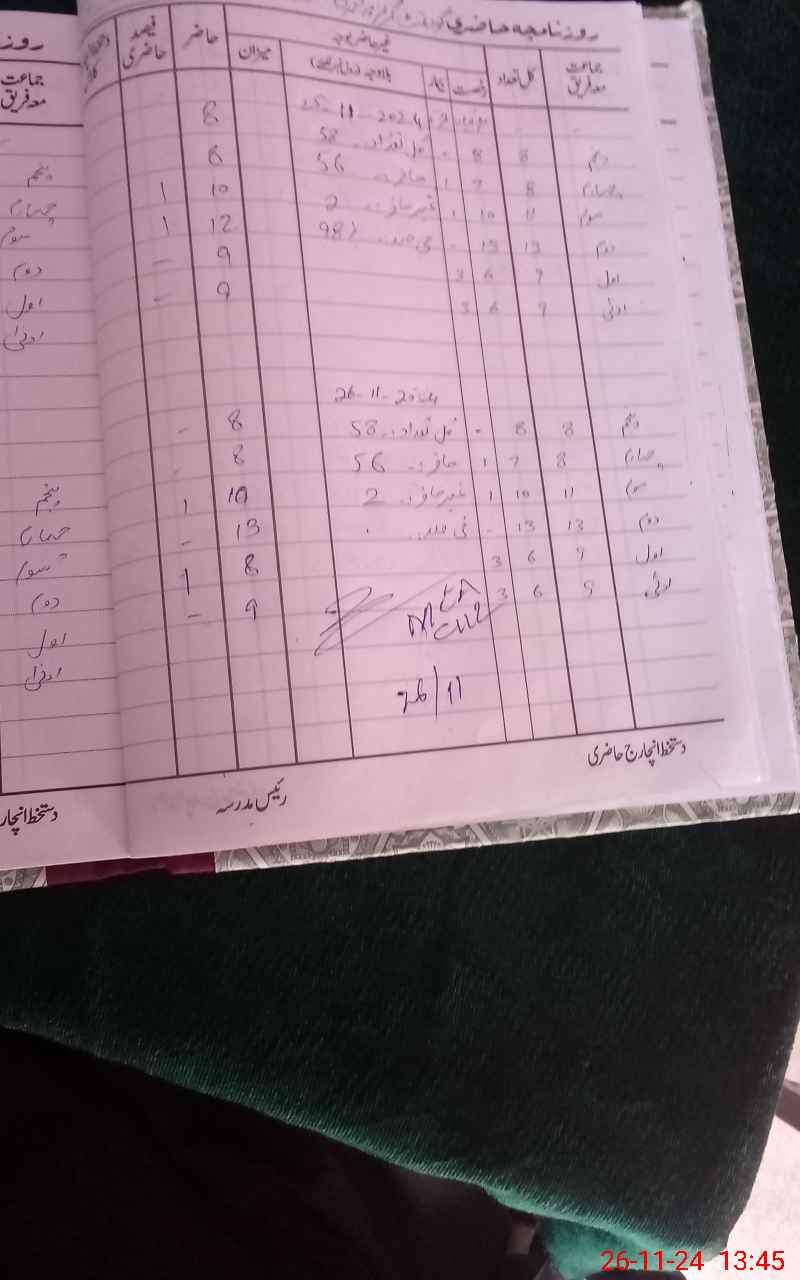 روزنامچہ حاضری
جماعت معہ فریق کل تعداد رخصت بیمار غیر حاضر بوجہ میزان حاضر فیصد حاضری
بلاوجہ
25-11-2024
8 8 - کل تعداد.. 58 8
چہارم 8 7 1 حاضر.. 56 8
سوم 11 10 1 غیر حاضر.. 2 10 1
دوم 13 13 - فی صد.. 98% 12 1
اول 9 6 3 9 -
ادنیٰ 9 6 3 9 -
26-11-20
پنجم 8 8 - کل تعداد.. 58 8 -
چہارم 8 7 1 حاضر.. 56 8 -
سوم 11 10 1 غیر حاضر.. 2 10 1
دوم 13 13 - فی صد.. 13 -
اول 9 6 3 8 1
ادنیٰ 9 6 3 9 -
26/11
دستخط انچارج حاضری
رئیس مدرسہ
روز
جماعت معہ فریق
پنجم
چہارم
سوم
دوم
اول
ادنیٰ
پنجم
چہارم
سوم
دوم
اول
ادنیٰ
دستخط انچار
26-11-24 13:45